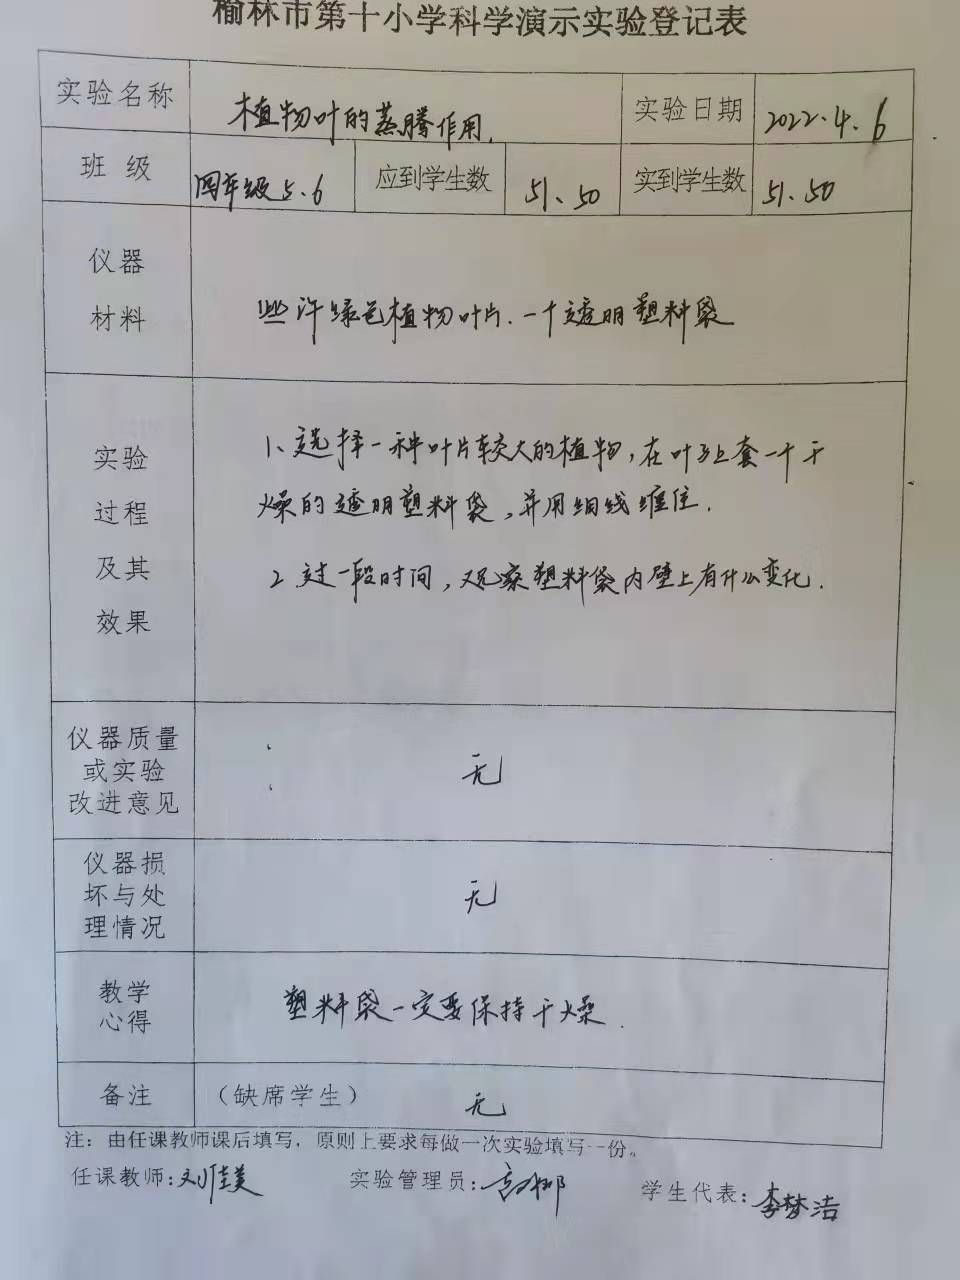 榆林市第十小学科学演示实验登记表
实验名称 植物叶的蒸腾作用. 实验日期 2022.4.6
班 级 四年级5、6 应到学生数 51、50 实到学生数 51、50
仪器
材料
些许绿色植物叶片.一个透明塑料袋
实验
过程
及其
效果
1、选择一种叶片较大的植物,在叶子上套一个干
燥的透明塑料袋,并用细线缠住.
2 过一段时间,观察塑料袋内壁上有什么变化.
仪器质量
或实验
改进意见
无
仪器损
坏与处
理情况
无
教学
心得
塑料袋一定要保持干燥.
备注 (缺席学生) 无
注：由任课教师课后填写，原则上要求每做一次实验填写一份。
任课教师:刘佳美 实验管理员: 学生代表:李梦洁